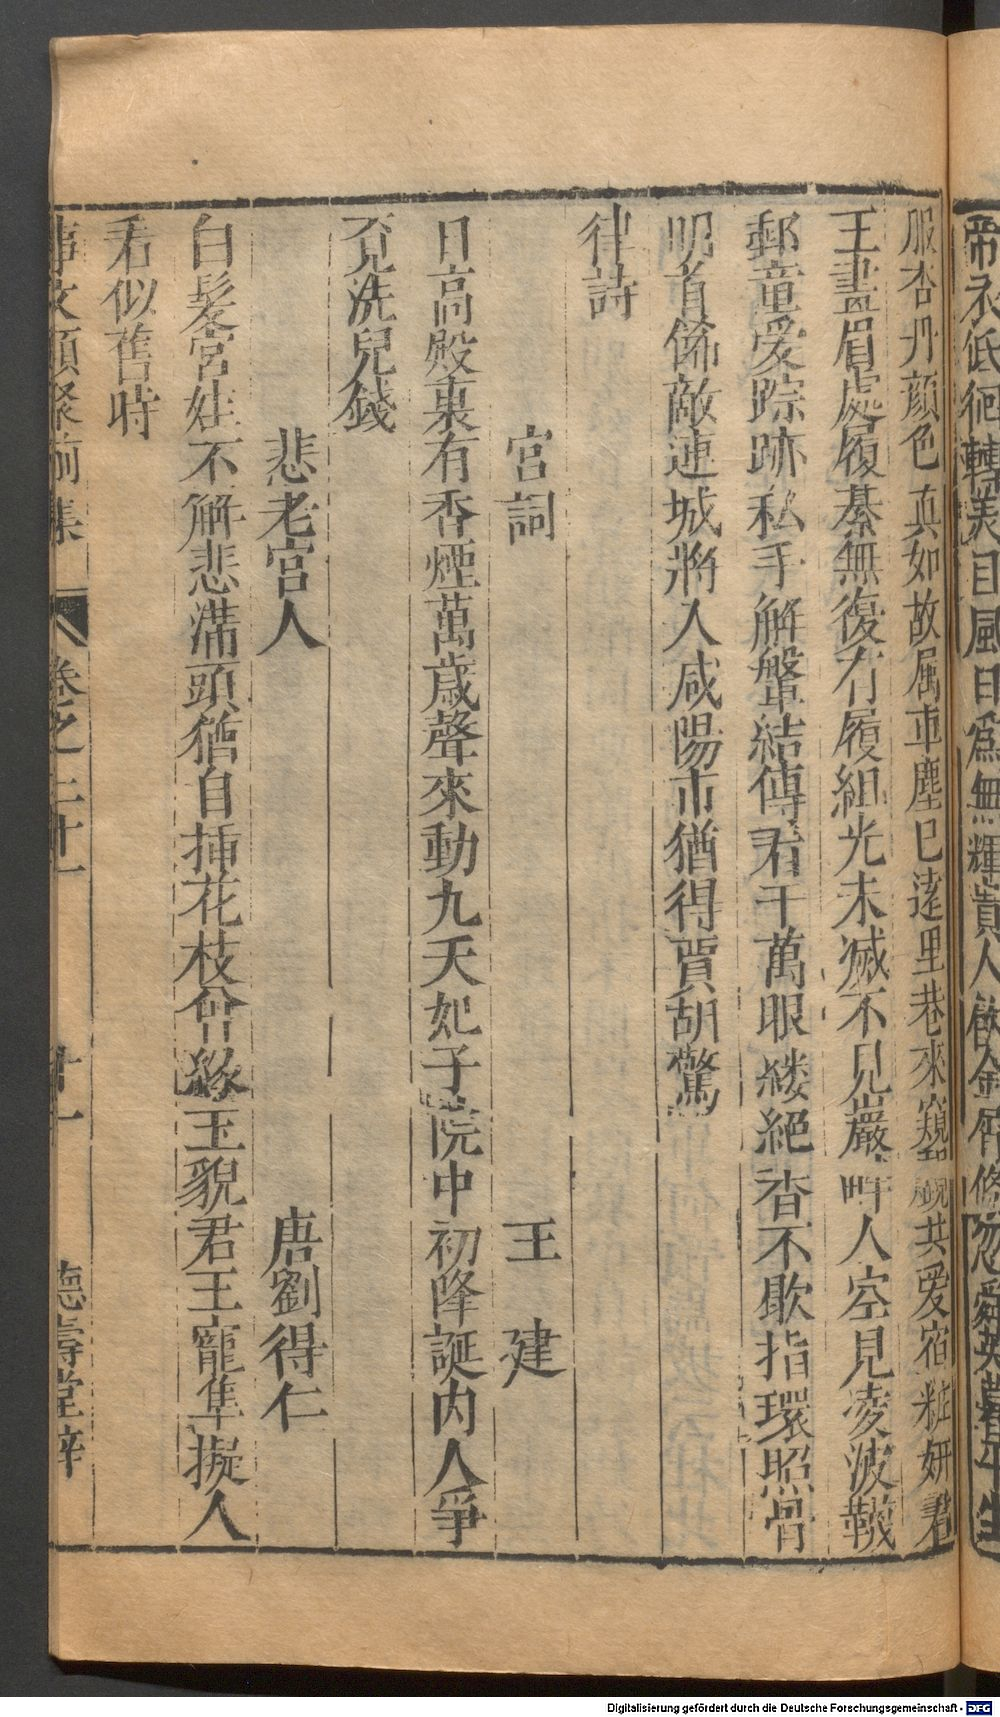 帝衣低徊轉美目風日爲無輝貴人飲金屑倏忽舜英暮平生
服杏丹顔色真如故属車塵已遠里巷來窺覷共爱宿粧妍君
王畫眉處履綦無復有履組光未滅不見巖畔人空見凌波韈
郵童爱踪跡私手解鞶結傳看千萬眼縷絕香不歇指環照骨
明首飾敵連城將入咸陽市猶得賈胡驚
律詩
宮詞 王建
日高殿裏有香煙萬歲聲來動九天妃子院中初降誕内人爭
覔洗兒錢
悲老宮人 唐劉得仁
白髮宮娃不解悲滿頭猶自挿花枝曾緣玉貌君王寵準擬人
看似舊時
事文類聚前集 卷之二十一 十一 德壽堂梓
Digitalisierung gefördert durch die Deutsche Forschungsgemeinschaft - DFG